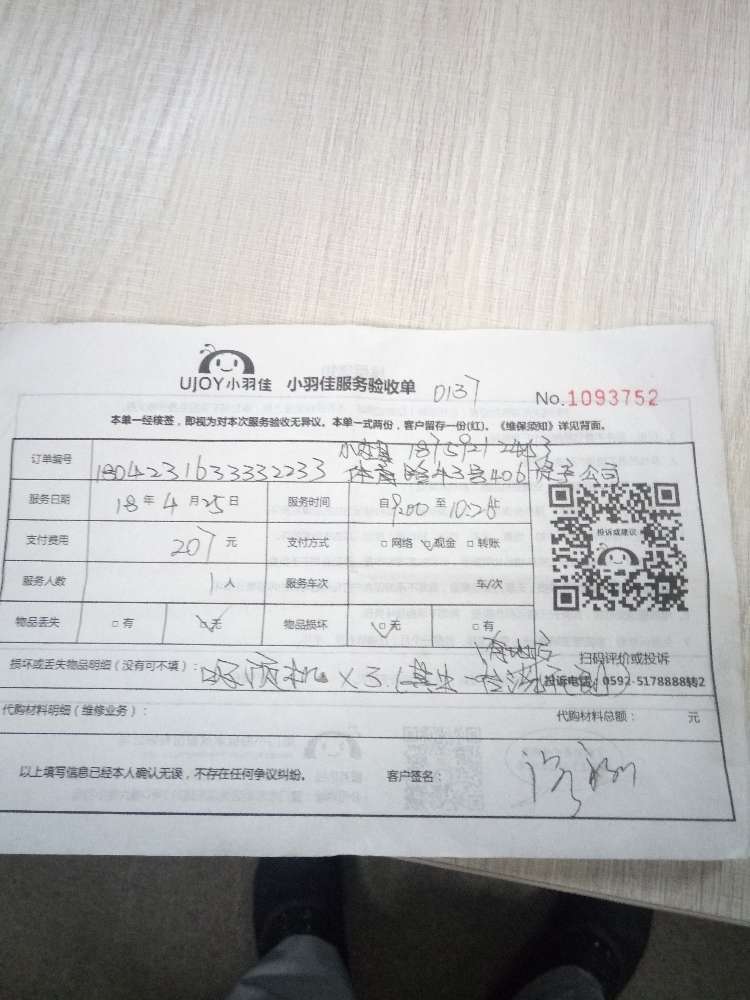 UJOY小羽佳 小羽佳服务验收单 0137 No.1093752
本单一经核签，即视为对本次服务验收无异议。本单一式两份，客户留存一份(红)。《维保须知》详见背面。
订单编号 1804231633332233
体育路43号406 公司
服务日期 18年4月25日 服务时间 自9:00至10:26
支付费用 207元 支付方式 □网络 ☑现金 □转账
投诉或建议
服务人数 1人 服务车次 车/次
物品丢失 □有 ☑无 物品损坏 ☑无 □有
扫码评价或投诉
损坏或丢失物品明细（没有可不填）： 机×3. 投诉电话：0592-5178888转2
代购材料明细（维修业务）： 代购材料总额： 元
以上填写信息已经本人确认无误，不存在任何争议纠纷。 客户签名：